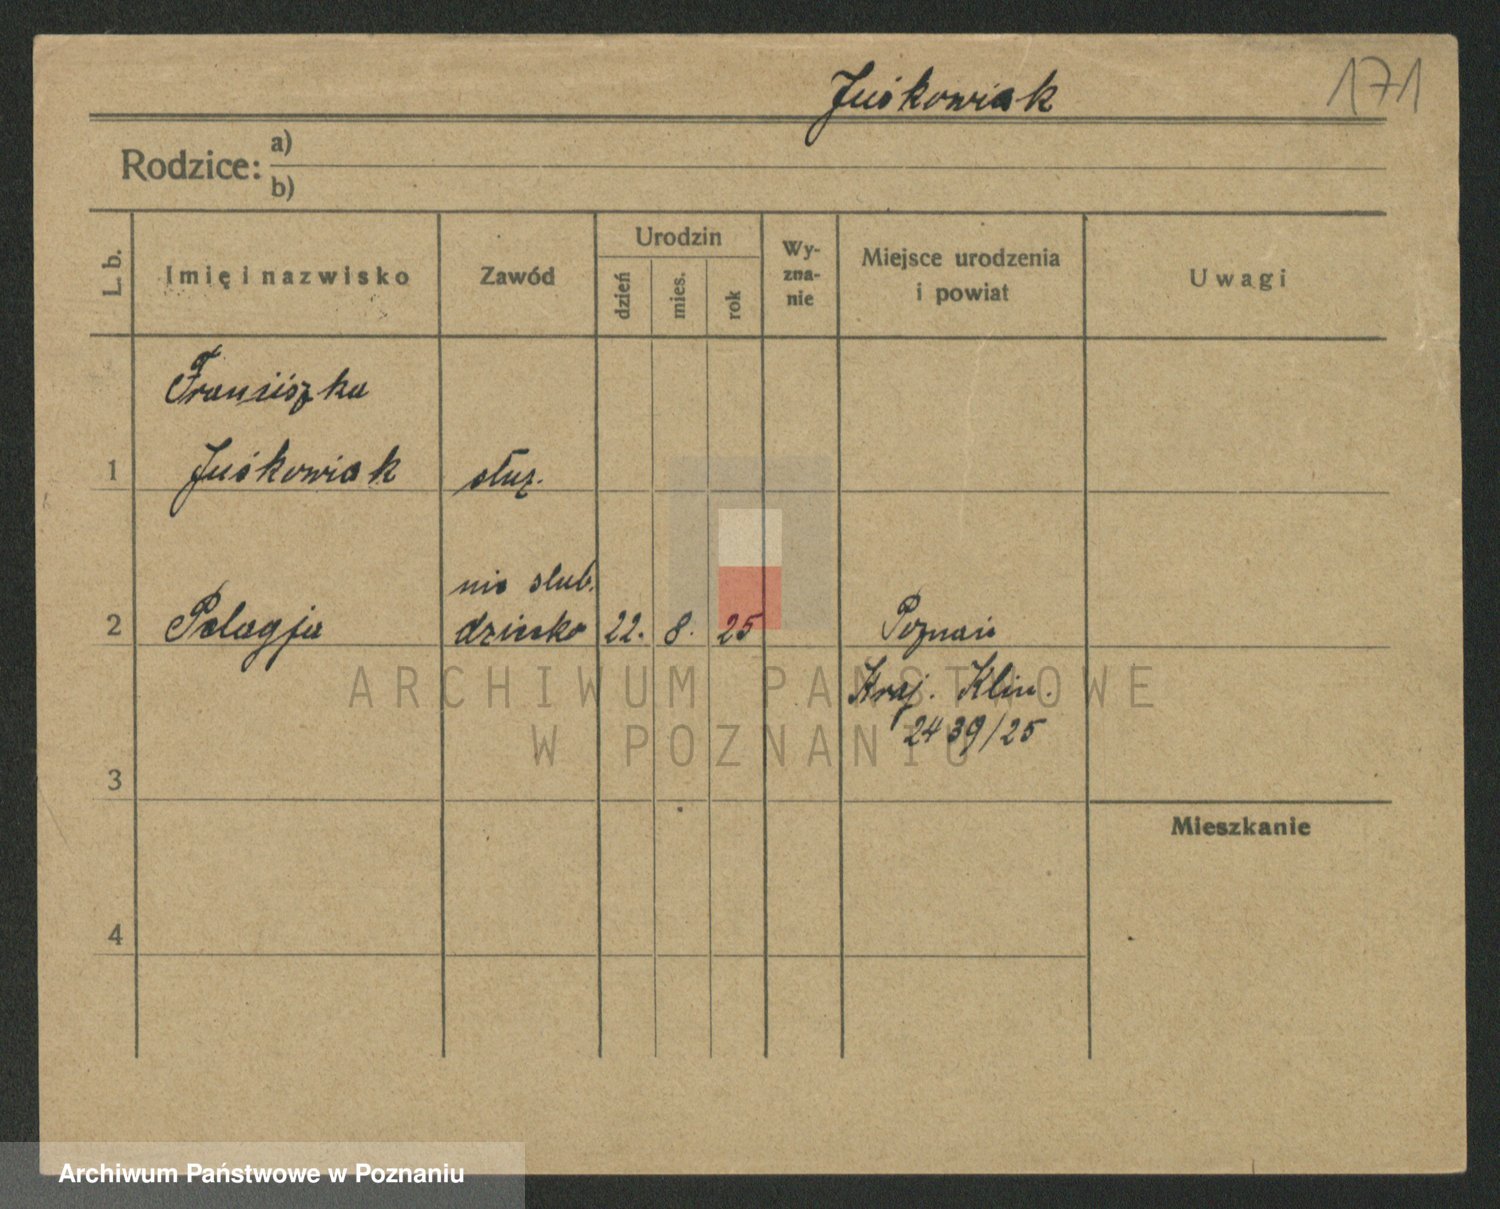 Juśkowiak
171
Rodzice:
a)
b)
L. b.
Imię i nazwisko
Zawód
Urodzin
dzień
mies.
rok
Wy-
zna-
nie
Miejsce urodzenia
i powiat
Uwagi
Franciszka
1
Juśkowiak
służ.
nie ślub.
2
Pelagja
dziecko
22.
8.
25
Poznań
Kraj. Klin.
2439/25
ARCHIWUM PAŃSTWOWE
W POZNANIU
3
Mieszkanie
4
Archiwum Państwowe w Poznaniu